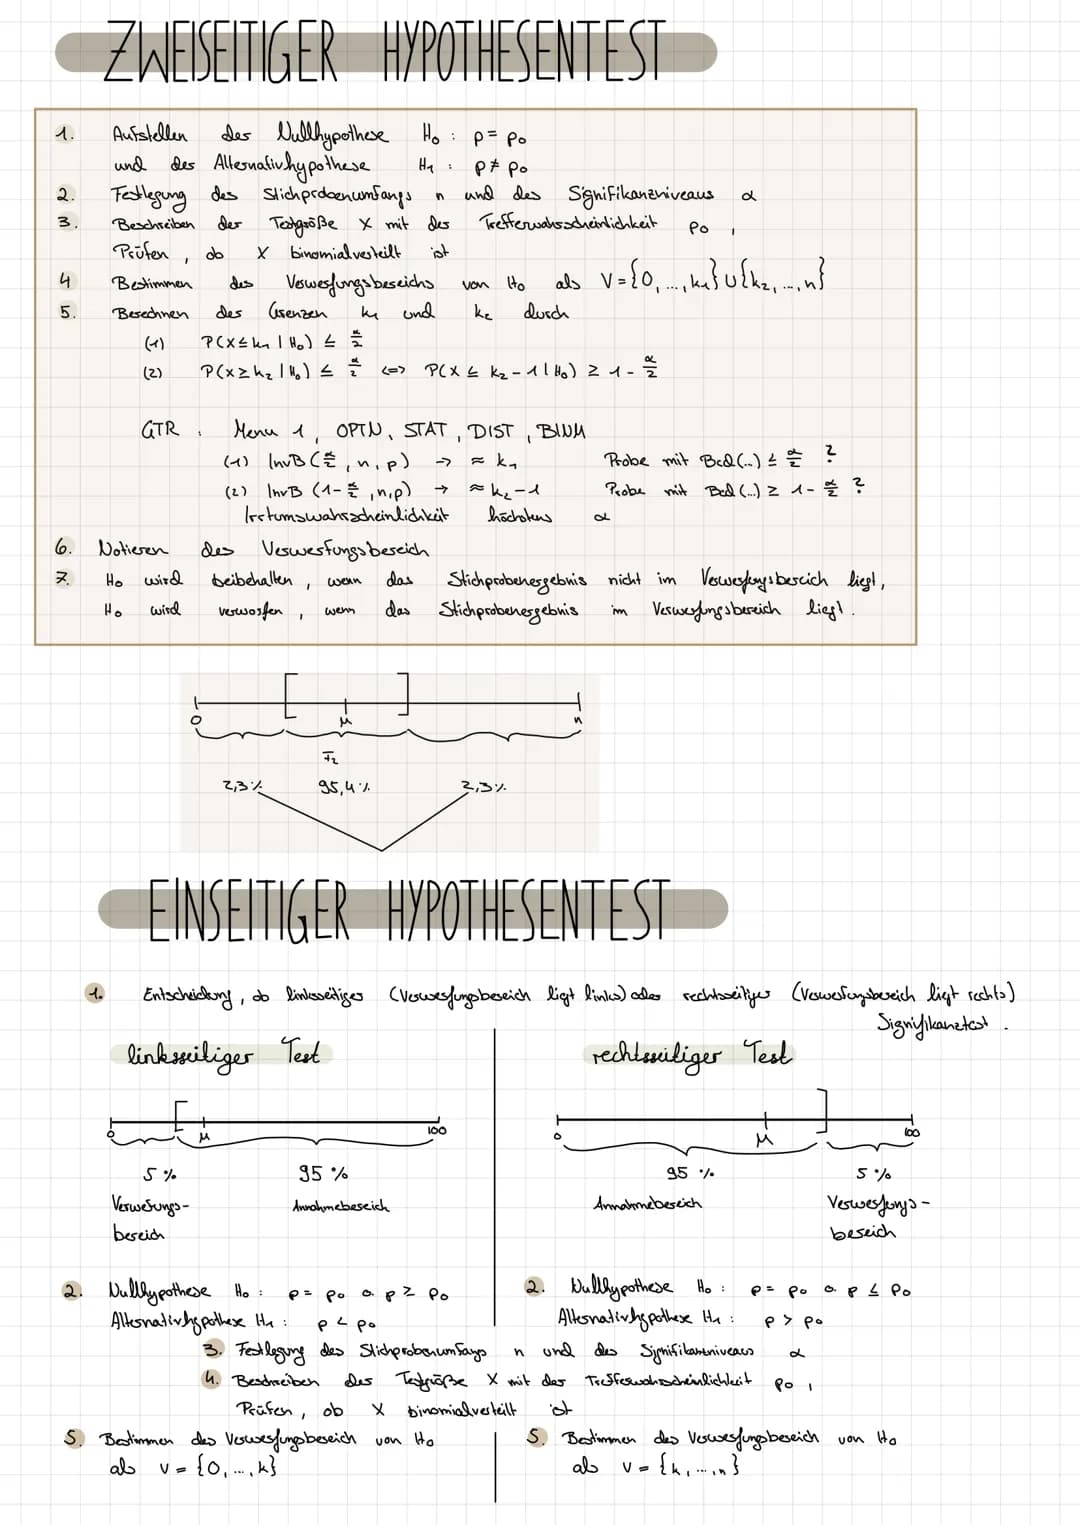 ZWEISEITIGER HYPOTHESENTEST
1. Aufstellen der Nullhypothese H₀ : p = p₀
und der Alternativhypothese H₁ : p ≠ p₀
2. Festlegung des Stichprobenumfangs n und des Signifikanzniveaus α
3. Beschreiben der Testgröße X mit der Trefferwahrscheinlichkeit p₀ ,
Prüfen , ob X binomialverteilt ist
4 Bestimmen des Verwerfungsbereichs von H₀ als V = {0, ..., k₁} ∪ {k₂, ..., n}
5. Berechnen der Grenzen k₁ und k₂ durch
(1) P(X ≤ k₁ | H₀) ≤ α/2
(2) P(X ≥ k₂ | H₀) ≤ α/2 <=> P(X ≤ k₂ - 1 | H₀) ≥ 1 - α/2
GTR : Menu 1 , OPTN, STAT , DIST , BINM
(1) InvB (α/2 , n, p) → ≈ k₁ Probe mit Bcd(..) ≤ α/2 ?
(2) InvB (1-α/2 , n,p) → ≈ k₂-1 Probe mit Bcd (...) ≥ 1 - α/2 ?
Irrtumswahrscheinlichkeit höchstens α
6. Notieren des Verwerfungsbereich
7. H₀ wird beibehalten , wenn das Stichprobenergebnis nicht im Verwerfungsbereich liegt,
H₀ wird verworfen , wenn das Stichprobenergebnis im Verwerfungsbereich liegt .
0 μ n
2,3% 95,4% 2,3%
EINSEITIGER HYPOTHESENTEST
1. Entscheidung , ob linksseitiger (Verwerfungsbereich ligt links) oder rechtsseitiger (Verwerfungsbereich ligt rechts)
Signifikanztest .
linksseitiger Test
0 μ 100
5 % 95 %
Verwerfungs- Annahmebereich
bereich
2. Nullhypothese H₀ : p = p₀ o. p ≥ p₀
Alternativhypothese H₁ : p < p₀
rechtsseitiger Test
0 μ 100
95 % 5 %
Annahmebereich Verwerfungs-
bereich
2. Nullhypothese H₀ : p = p₀ o. p ≤ p₀
Alternativhypothese H₁ : p > p₀
3. Festlegung des Stichprobenumfangs n und des Signifikanzniveaus α
4. Beschreiben der Testgröße X mit der Trefferwahrscheinlichkeit p₀ ,
Prüfen , ob X binomialverteilt ist
5. Bestimmen des Verwerfungsbereich von H₀
als V = {0, ..., k}
5. Bestimmen des Verwerfungsbereich von H₀
als V = {k, ..., n}